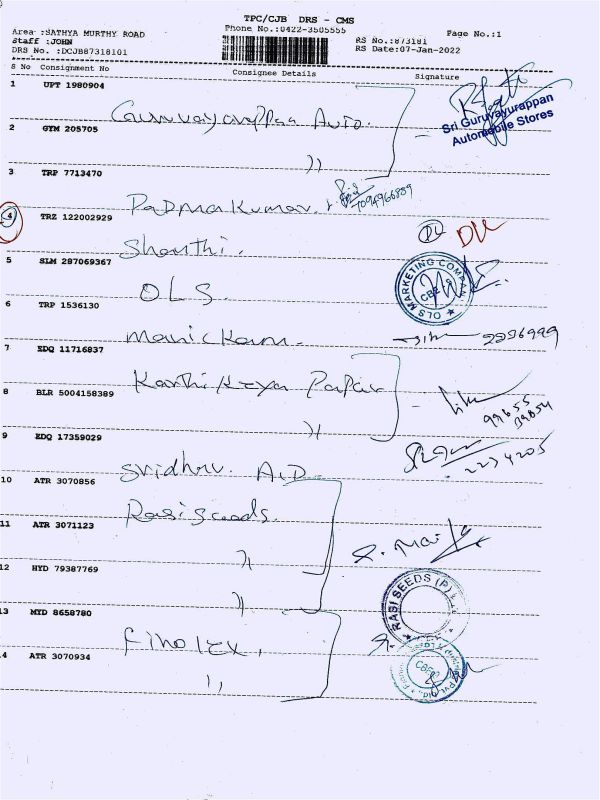 TPC/CJB DRS - CMS
Area :SATHYA MURTHY ROAD
Phone No.:0422-3505555
Page No.:1
Staff :JOHN
RS No.:873181
DRS No. :DCJB87318101
RS Date:07-Jan-2022
S No Consignment No Consignee Details Signature
1 UPT 1980904
Guruvayurappaa Auto.
Sri Guruvayurappan
Automobile Stores
2 GYM 205705
"
3 TRP 7713470
Padmakumar. 7094966889
4 TRZ 122002929
Shanthi.
5 SLM 287069367
OLS
OLS MARKETING COMPANY
CBE
6 TRP 1536130
Manickam. 2296999
7 EDQ 11716837
Karthikeya Papar
8 BLR 5004158389
" 99655
39854
9 EDQ 17359029
Sridhar. A.D. 2274205
10 ATR 3070856
Rasi Seeds.
11 ATR 3071123
"
12 HYD 79387769
"
RASI SEEDS (P)
13 MYD 8658780
Finolex,
4 ATR 3070934
"